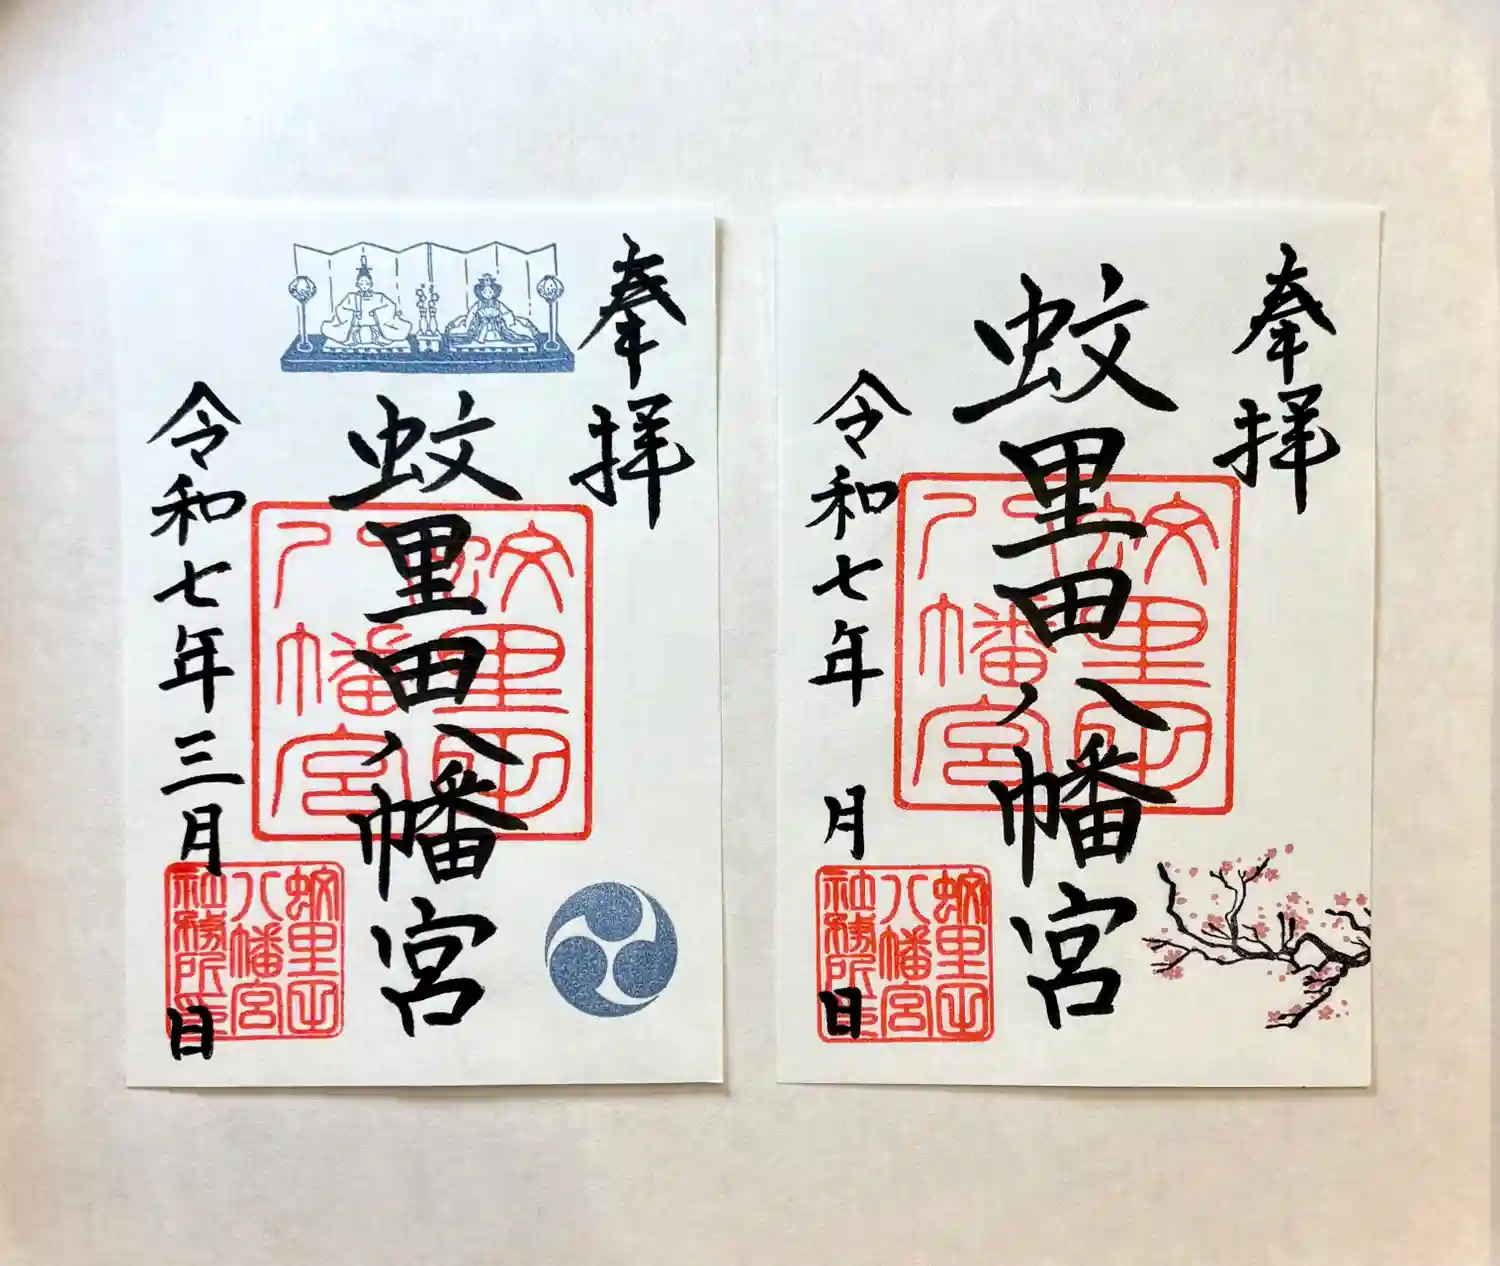 奉拝
蚊里田八幡宮
令和七年三月 日
蚊里田八幡宮
蚊里田八幡宮社務所印
奉拝
蚊里田八幡宮
令和七年 月 日
蚊里田八幡宮
蚊里田八幡宮社務所印